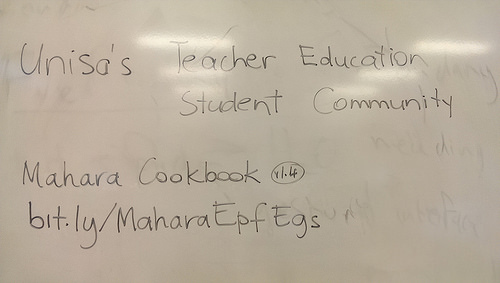 Unisa's Teacher Education
Student Community
Mahara Cookbook v1.4
bit.ly/MaharaEpfEgs